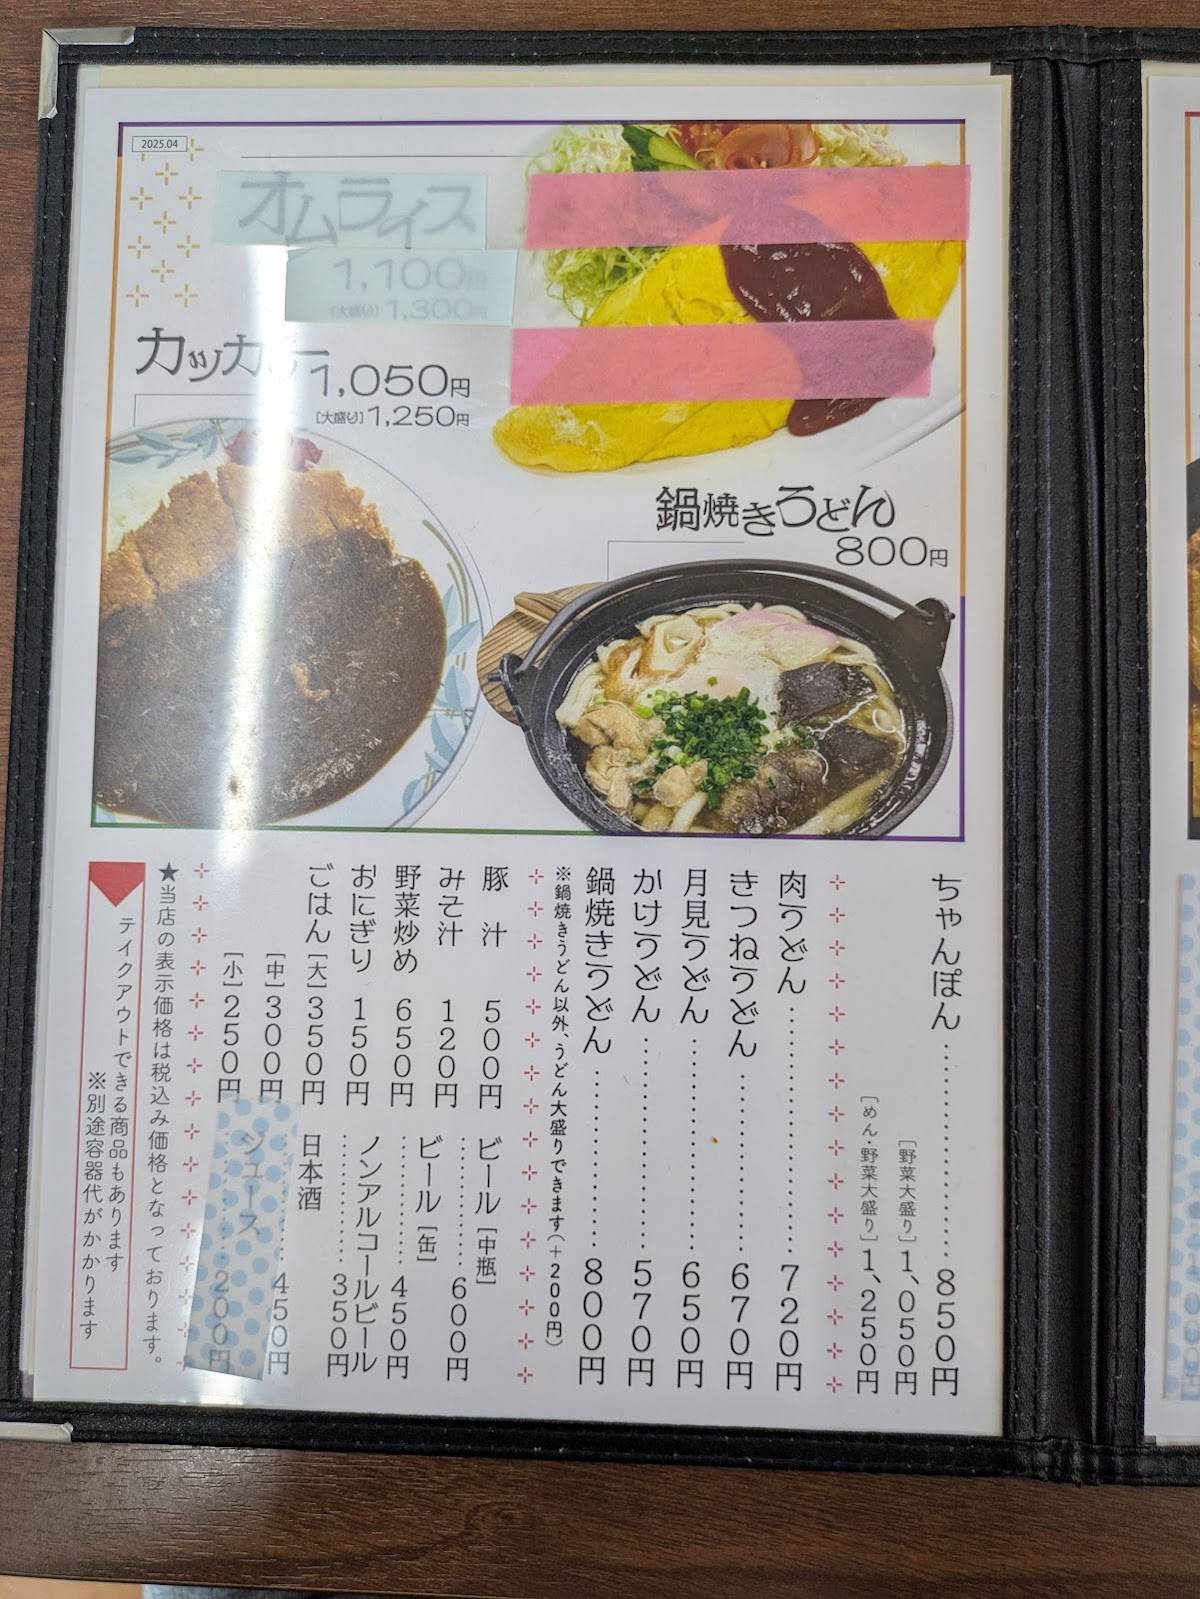 2025.04
オムライス
1,100円
[大盛り]1,300円
カツカレー
1,050円
[大盛り]1,250円
鍋焼きうどん
800円
ちゃんぽん……850円
[野菜大盛り]1,050円
[めん・野菜大盛り]1,250円
肉うどん……720円
きつねうどん……670円
月見うどん……650円
かけうどん……570円
鍋焼きうどん……800円
※鍋焼きうどん以外、うどん大盛りできます(+200円)
豚汁 500円
みそ汁 120円
野菜炒め 650円
おにぎり 150円
ごはん[大]350円
[中]300円
[小]250円
ビール[中瓶]
……600円
ビール[缶]
……450円
ノンアルコールビール
……350円
日本酒
……450円
ジュース
……200円
★当店の表示価格は税込み価格となっております。
テイクアウトできる商品もあります
※別途容器代がかかります